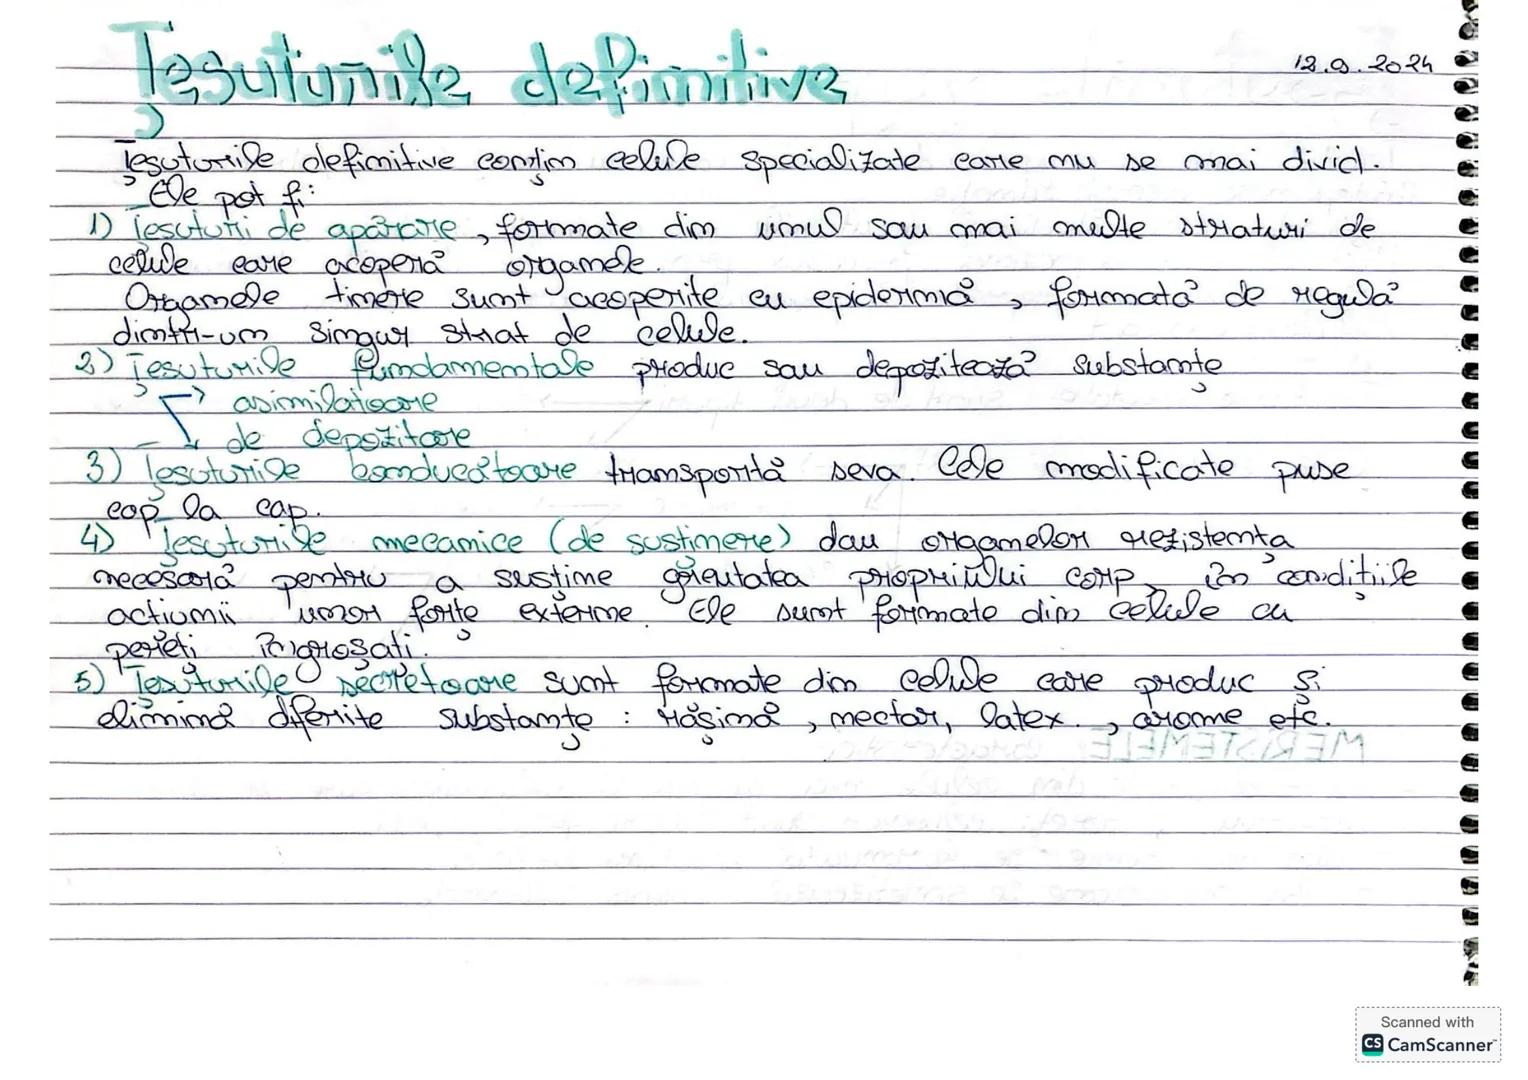 Țesuturile definitive
12.9.2024
Țesuturile definitive conțin celule specializate care nu se mai divid.
Ele pot fi:
1) Țesuturi de apărare, formate din unul sau mai multe straturi de
celule care acoperă organele.
Organele tinere sunt acoperite cu epidermă, formată de regulă
dintr-un singur strat de celule.
2) Țesuturile fundamentale produc sau depozitează substanțe
→ asimilatoare
→ de depozitare
3) Țesuturile conducătoare transportă seva. Cele modificate puse
cap la cap.
4) Țesuturile mecanice (de susținere) dau organelor rezistența
necesară pentru a susține greutatea propriului corp, în condițiile
acțiunii unor forțe externe. Ele sunt formate din celule cu
pereți îngroșați.
5) Țesuturile secretoare sunt formate din celule care produc și
elimină diferite substanțe : rășină, nectar, latex., arome etc.
MERISTEMELE
Scanned with
CS CamScanner